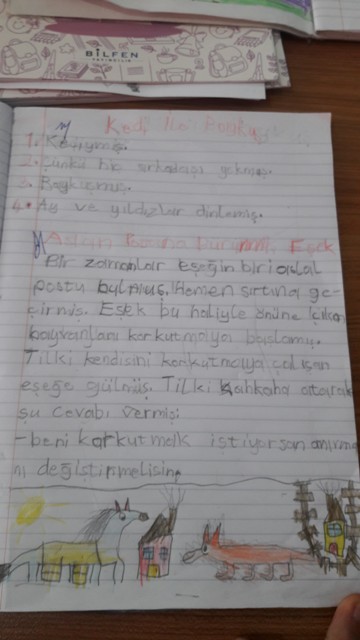 BİLFEN
YAYINCILIK
Kedi ile Baykuş
1. Kediymiş.
2. Çünkü hiç arkadaşı yokmuş.
3. Baykuşmuş.
4. Ay ve yıldızlar dinlemiş.
Aslan Eşek
Bir zamanlar eşeğin biri aslan
postu bulmuş. Hemen sırtına ge-
çirmiş. Eşek bu haliyle önüne çıkan
hayvanları korkutmaya başlamış.
Tilki kendisini korkutmaya çalışan
eşeğe gülmüş. Tilki kahkaha atarak
şu cevabı vermiş:
-beni korkutmak istiyorsan anırma
nı değiştirmelisin,